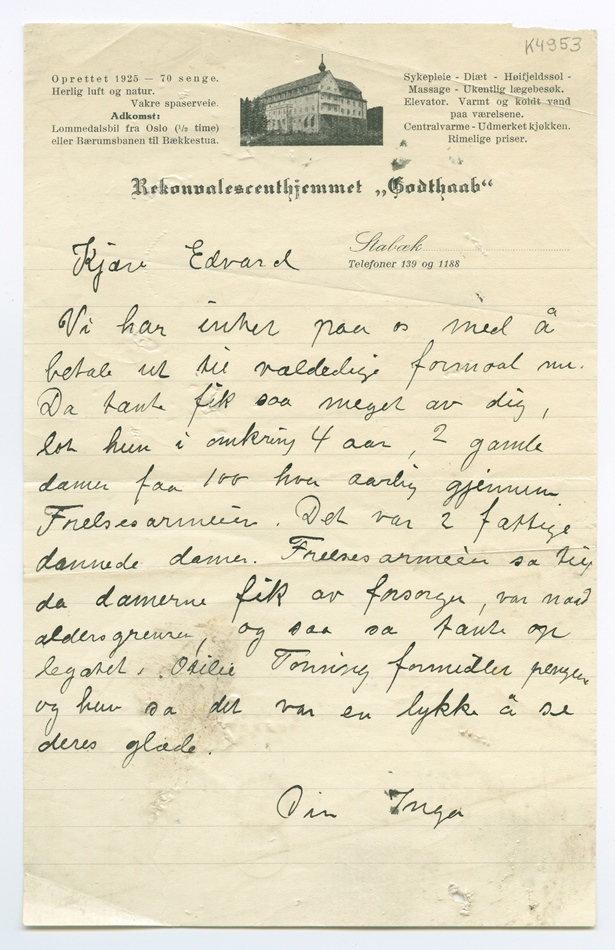 K4953
Oprettet 1925 — 70 senge.
Herlig luft og natur.
Vakre spaserveie.
Adkomst:
Lommedalsbil fra Oslo (½ time)
eller Bærumsbanen til Bækkestua.
Sykepleie - Diæt - Høifjeldssol -
Massage - Ukentlig lægebesøk.
Elevator. Varmt og koldt vand
paa værelsene.
Centralvarme - Udmerket kjøkken.
Rimelige priser.
Rekonvalescenthjemmet „Godthaab“
Stabæk
Telefoner 139 og 1188
Kjære Edvard
Vi har intet paa os med å
betale ut til veldedige formaal nu.
Da tante fik saa meget av dig,
lot hun i omkring 4 aar, 2 gamle
damer faa 100 hver aarlig gjennem
Frelsesarméen. Det var 2 fattige
dannede damer. Frelsesarméen sa
da damerne fik av forsorgen, var naad
aldersgrensen, og saa sa tante op
legatet. Otilie Tonning formidler pengene
og hun sa det var en lykke å se
deres glæde.
Din Inga